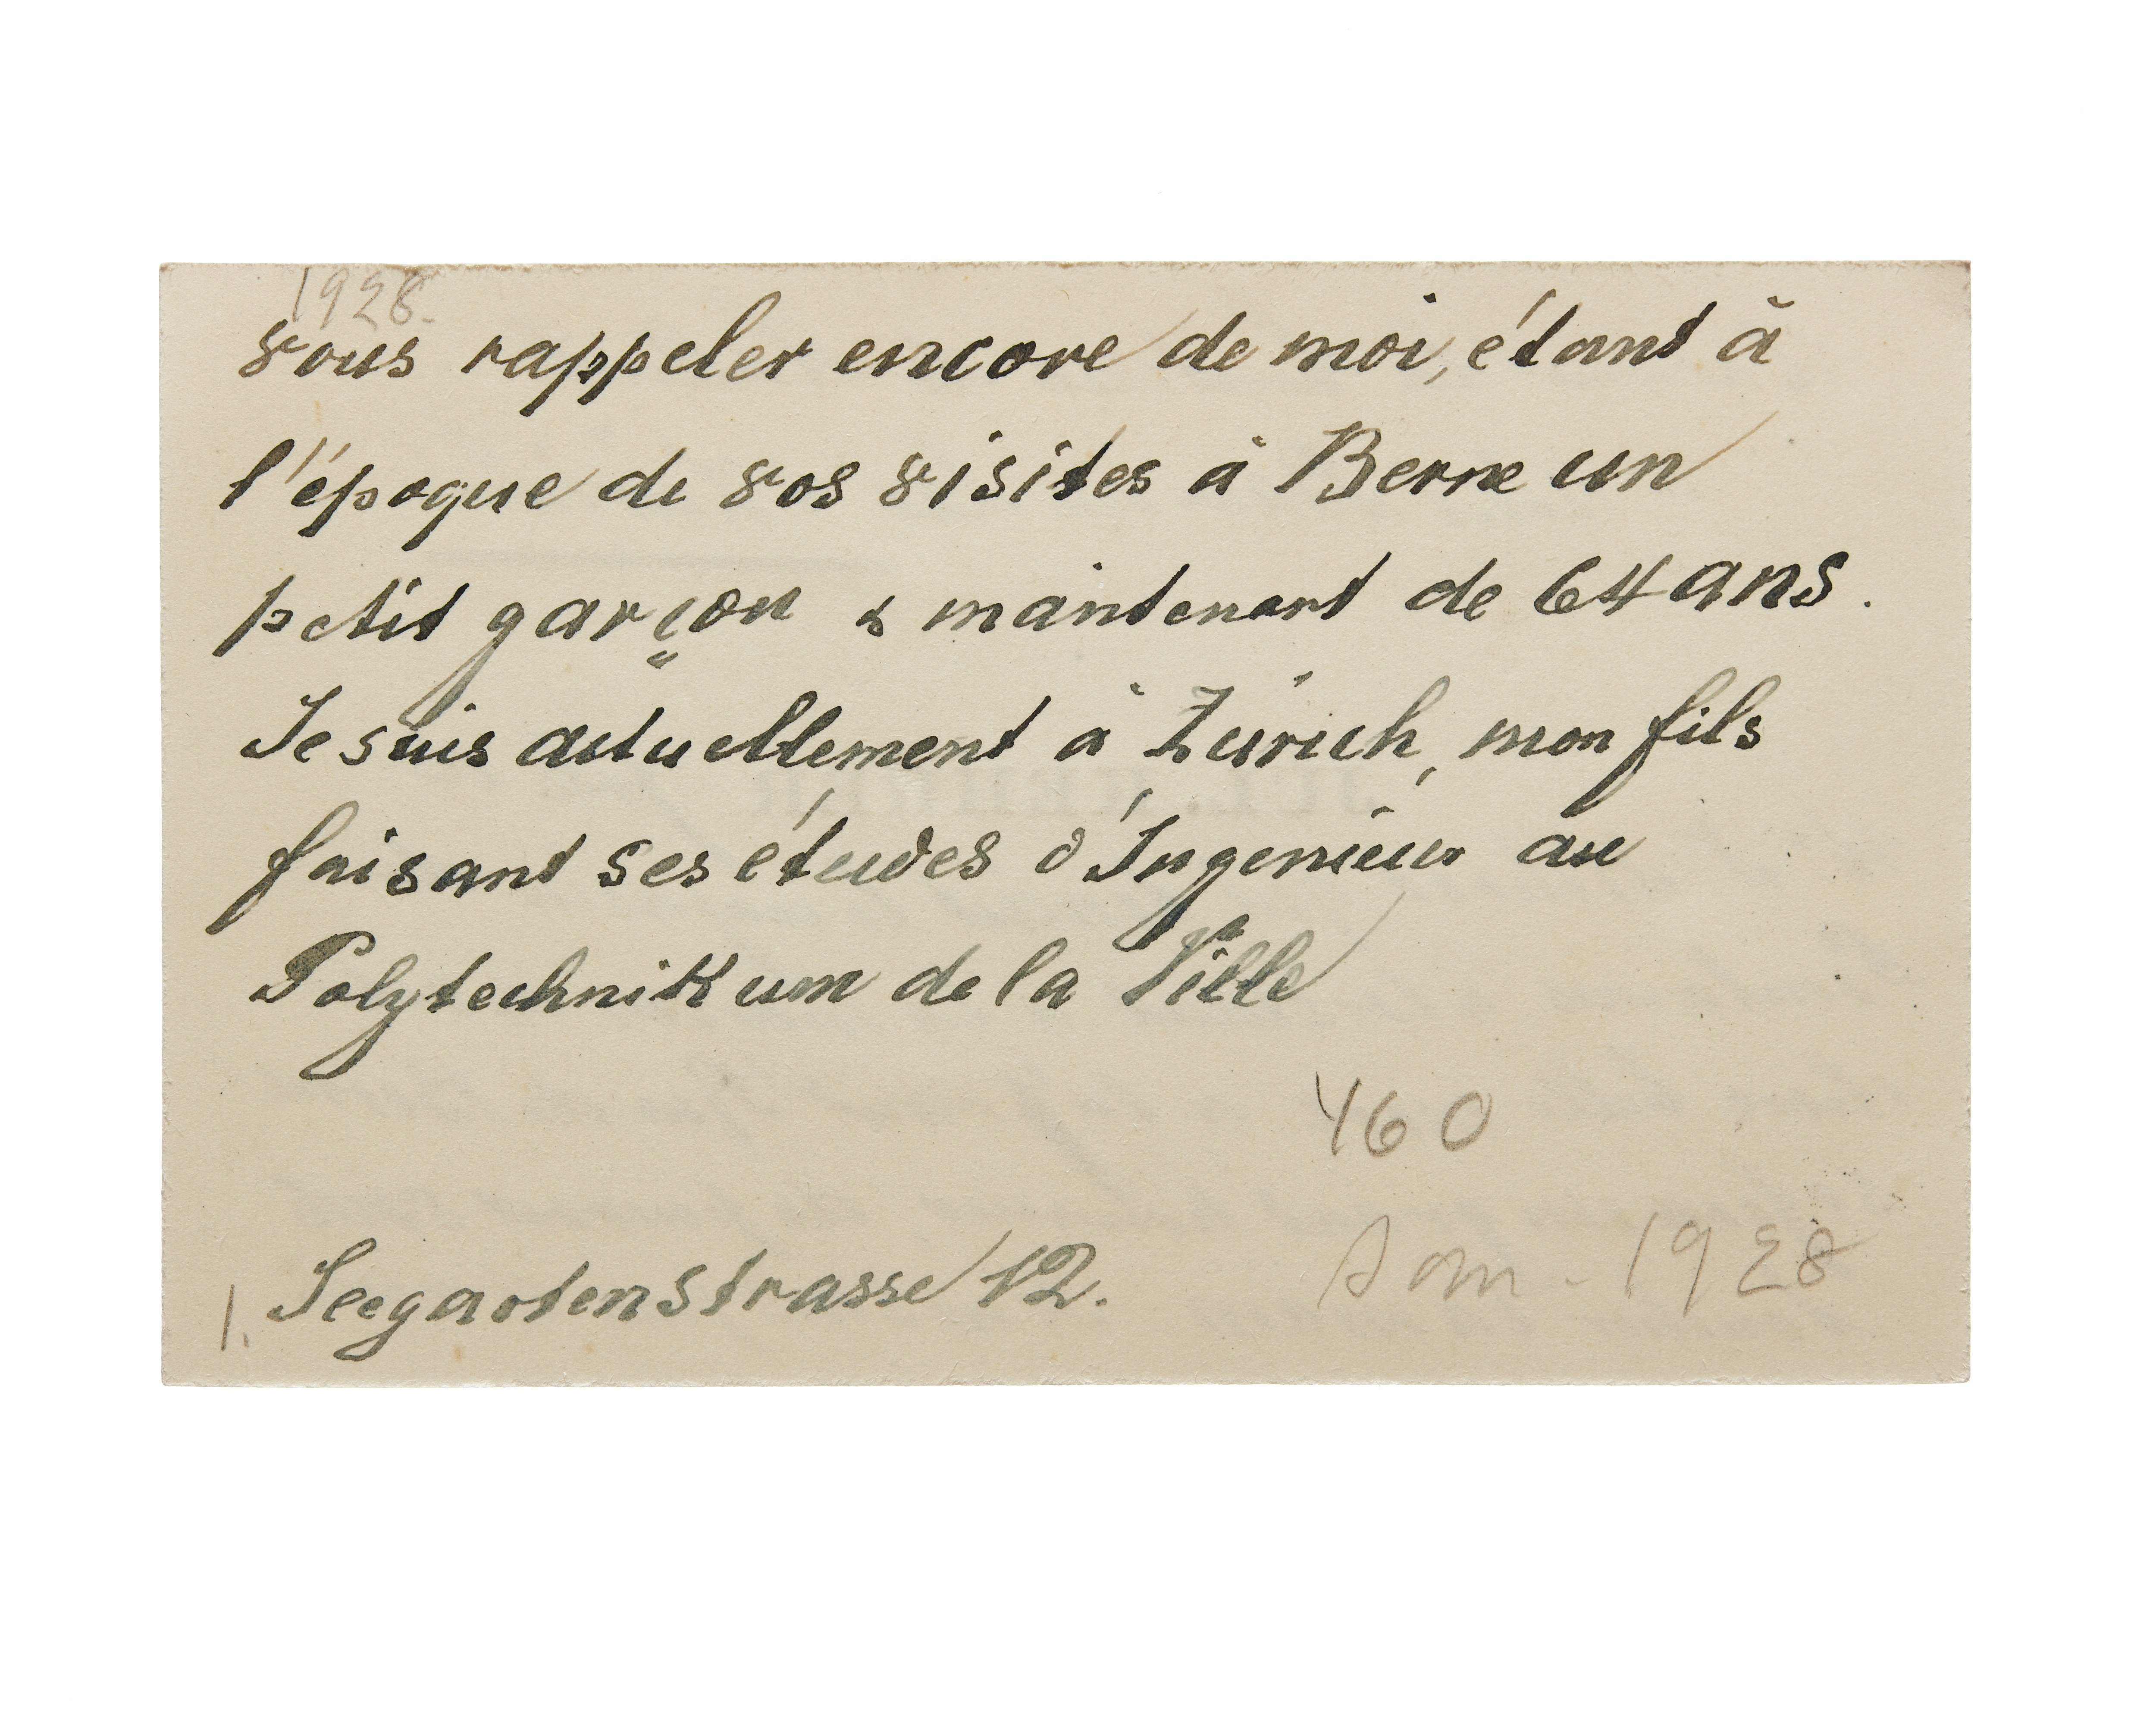 1928.
vous rappeler encore de moi, étant à
l'époque de vos visites à Berne un
petit garçon & maintenant de 64 ans.
Je suis actuellement à Zürich, mon fils
faisant ses études d'Ingenieur au
Polytechnikum de la Ville
460
1. Seegartenstrasse 12.
Som - 1928